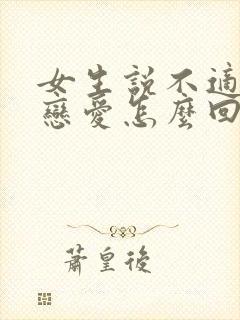 女生説不適
戀愛怎麼回
蕭皇後